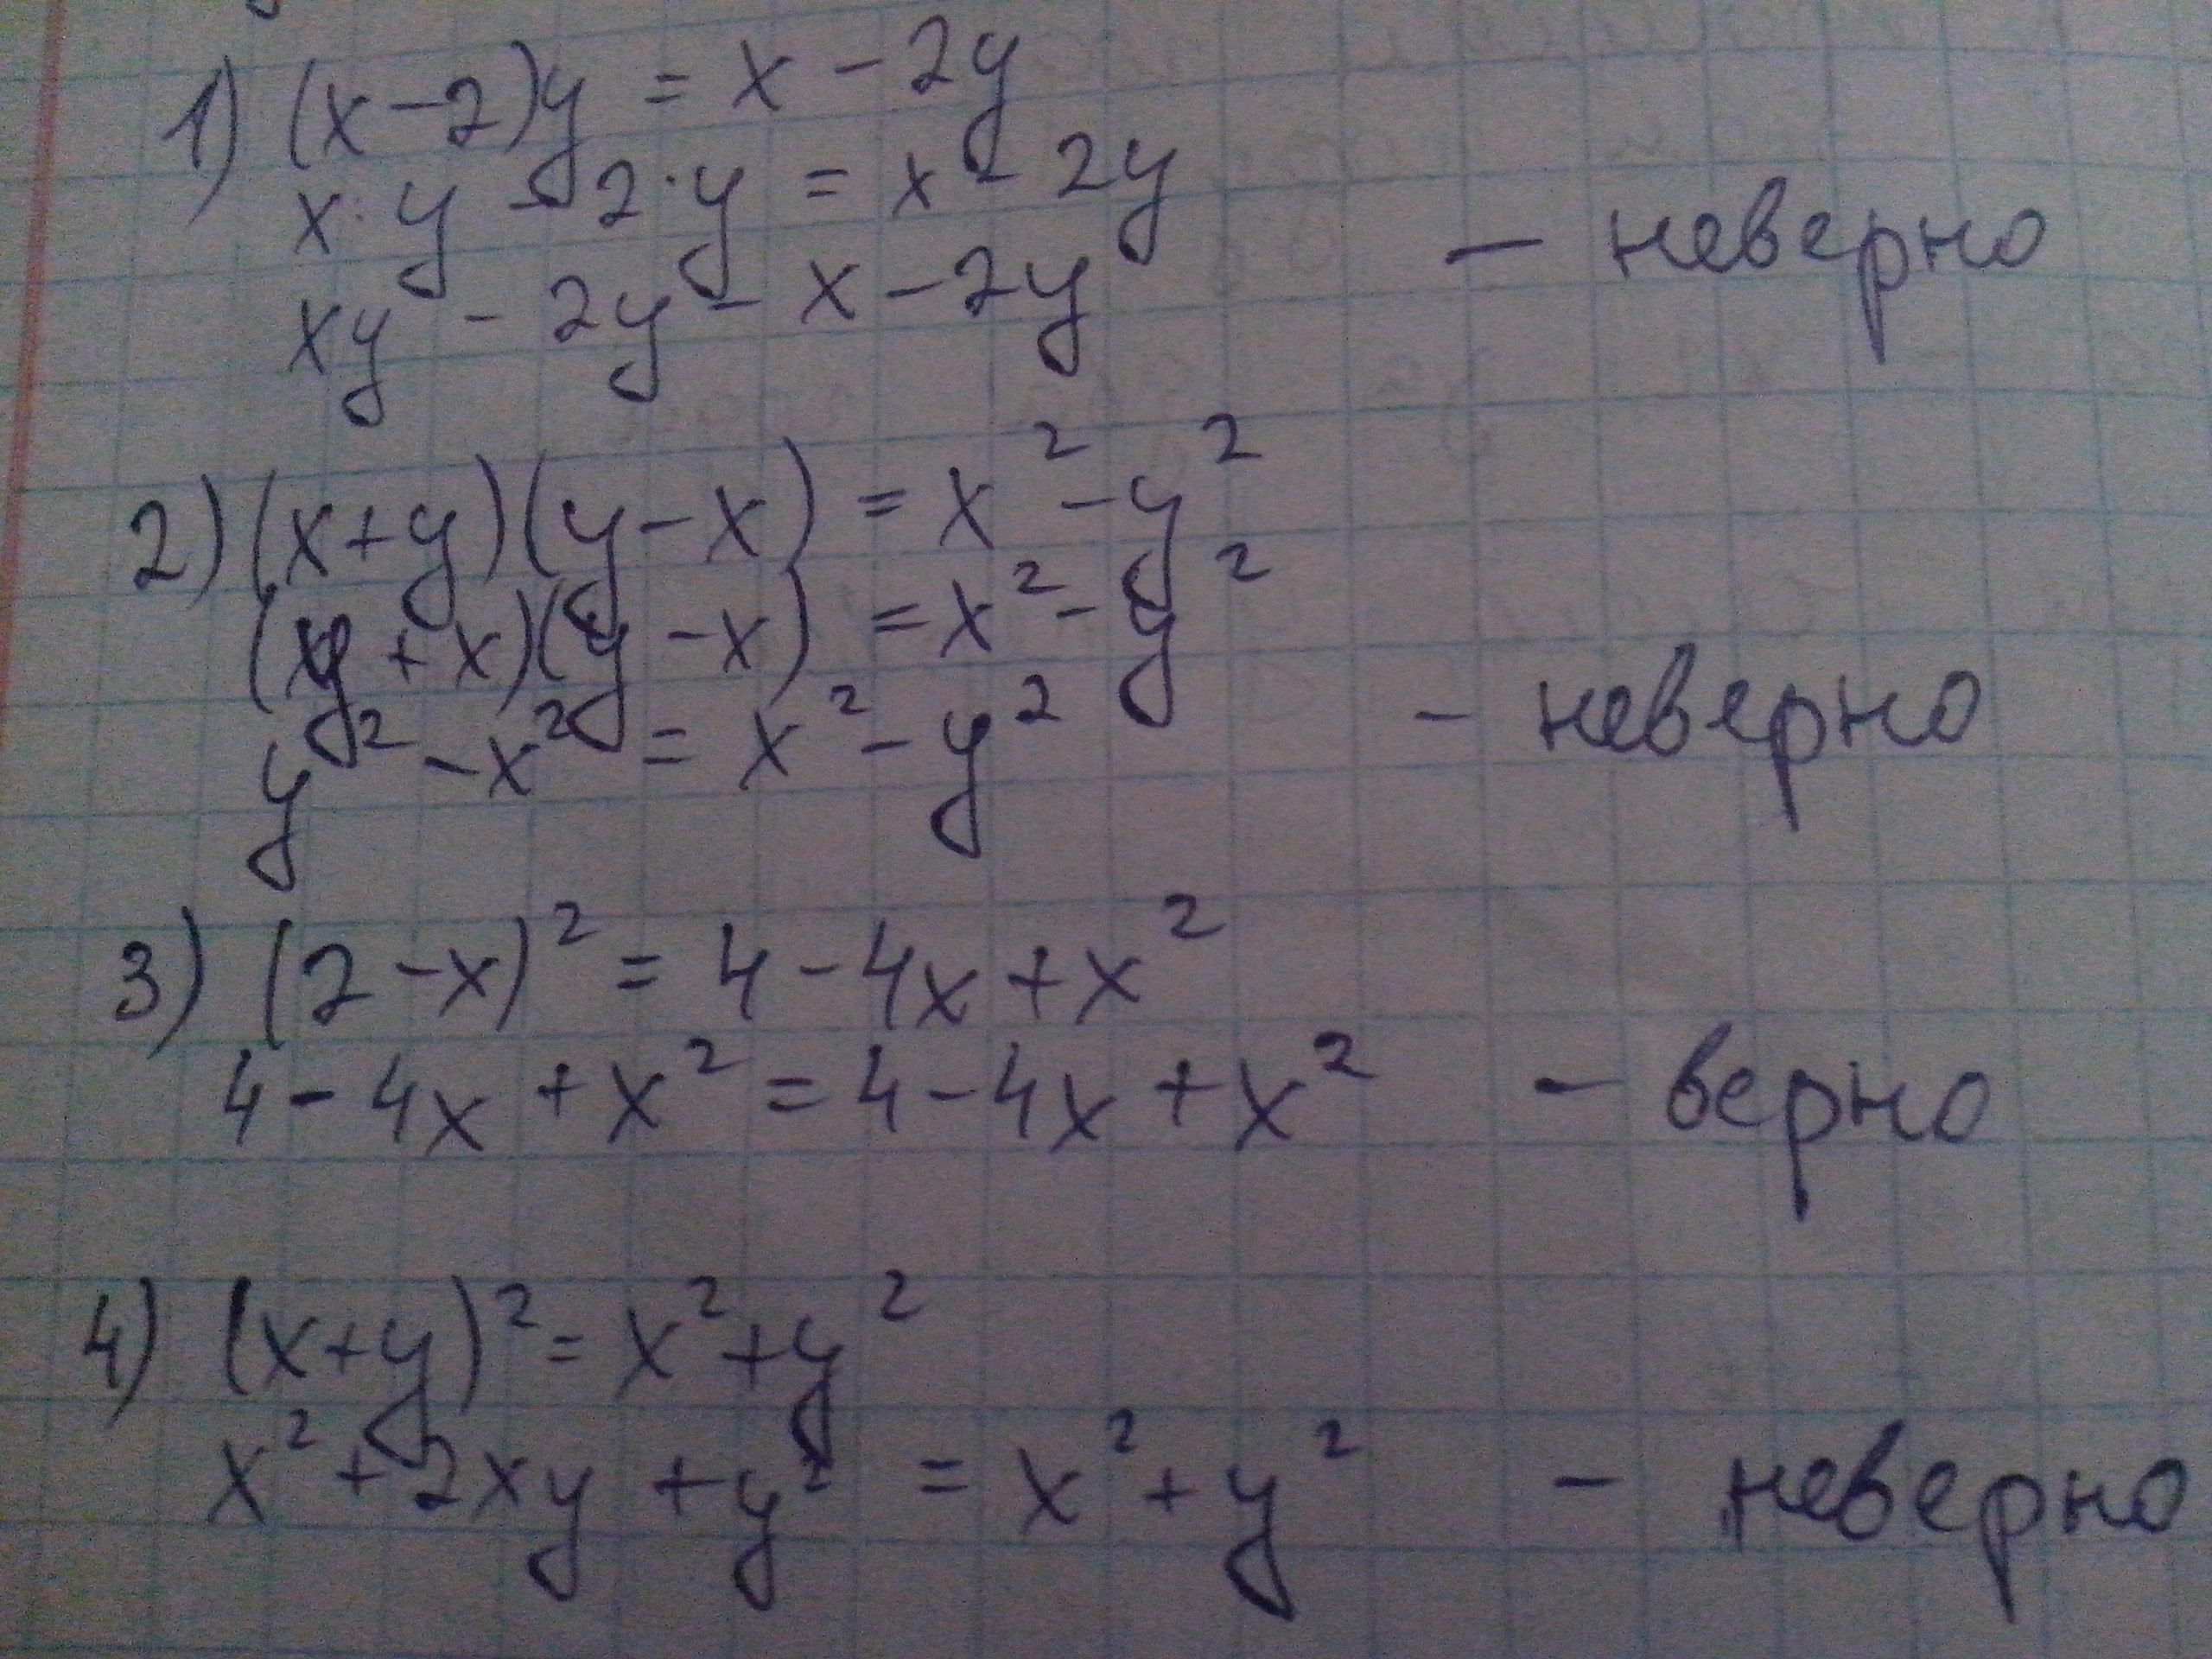 1) (x-2)y = x - 2y
x·y - 2·y = x - 2y
xy - 2y - x - 2y - неверно
2) (x+y)(y-x) = x² - y²
(y+x)(y-x) = x² - y²
y² - x² = x² - y² - неверно
3) (2-x)² = 4 - 4x + x²
4 - 4x + x² = 4 - 4x + x² - верно
4) (x+y)² = x² + y²
x² + 2xy + y² = x² + y² - неверно